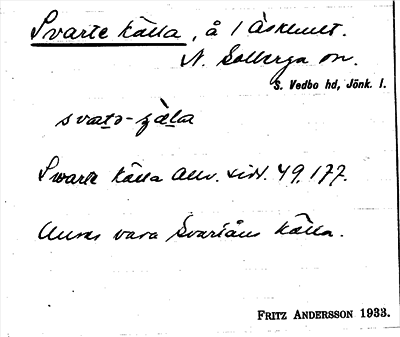 Svarte källa, å i Äskhult.
N. Solberga sn.
S. Vedbo hd, Jönk. l.
svaṯə-ҫäḻa
Swarte källa Allv. sid. 49, 177.
Anses vara Svartåns källa.
FRITZ ANDERSSON 1933.